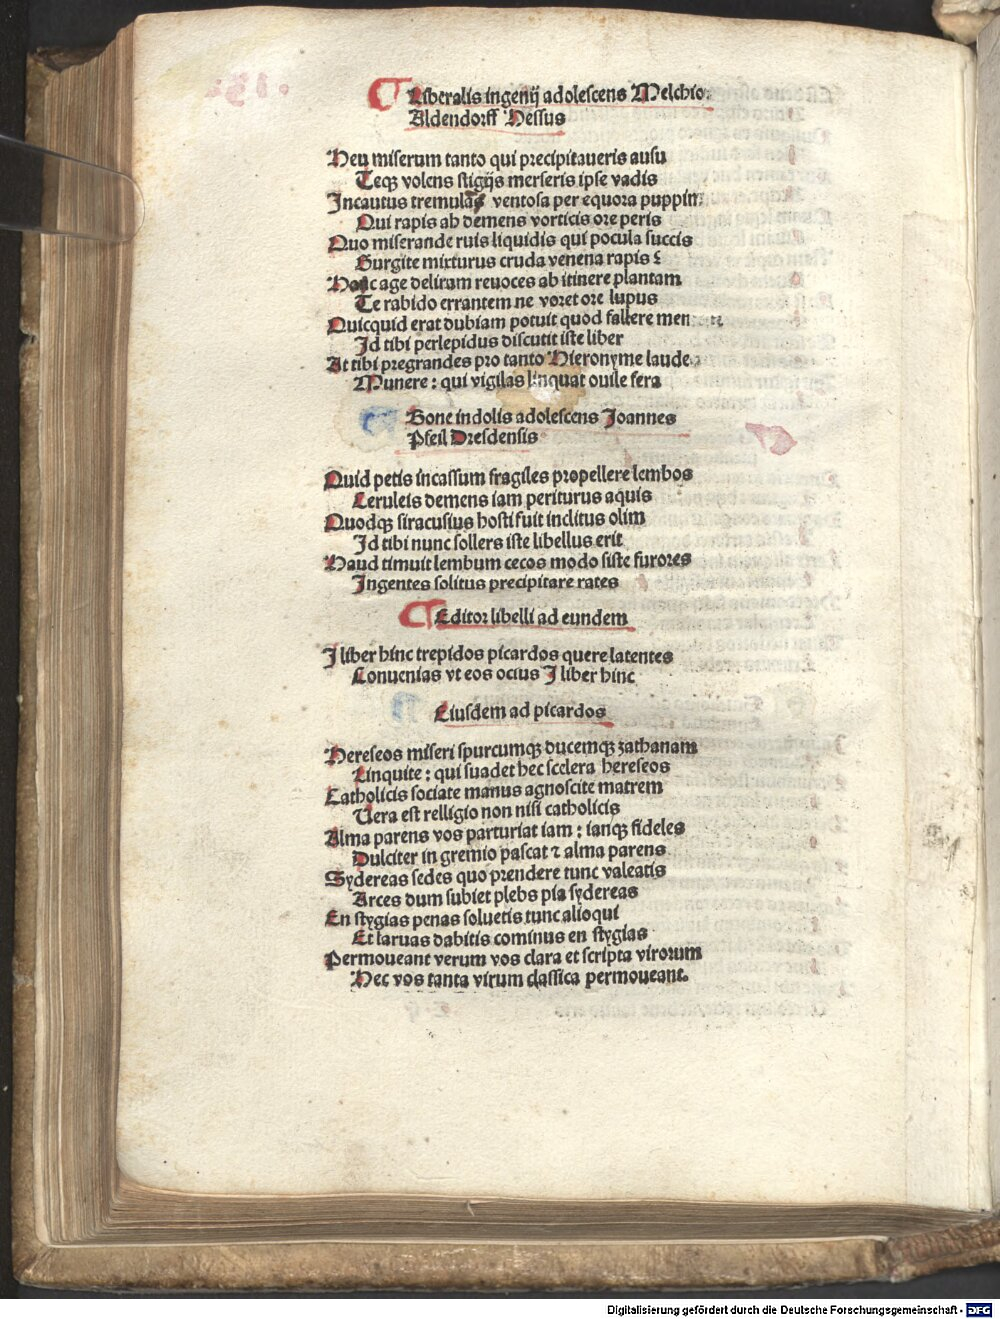 Liberalis ingenij adolescens Melchior
Aldendorff Hessus
Heu miserum tanto qui precipitaueris ausu
Teqȝ volens stigijs merseris ipse vadis
Incautus tremulas ventosa per equora puppim
Qui rapis ab demens vorticis ore peris
Quo miserande ruis liquidis qui pocula succis
Gurgite mixturus cruda venena rapis
age delirum reuoces ab itinere plantam
Te rabido errantem ne voret ore lupus
Quicquid erat dubiam potuit quod fallere men
Id tibi perlepidus discutit iste liber
At tibi pregrandes pro tanto Hieronyme laudes
Munere : qui vigilas linquat ouile fera
Bone indolis adolescens Joannes
Pfeil Dresdensis
Quid petis incassum fragiles propellere lembos
Ceruleis demens iam periturus aquis
Quodqȝ siracusius hosti fuit inclitus olim
Id tibi nunc sollers iste libellus erit
Haud timuit lembum cecos modo siste furores
Ingentes solitus precipitare rates
Editor libelli ad eundem
I liber hinc trepidos picardos quere latentes
Conuenias vt eos ocius I liber hinc
Eiusdem ad picardos
Hereseos miseri spurcumqȝ ducemqȝ zathanam
Linquite : qui suadet hec scelera hereseos
Catholicis sociate manus agnoscite matrem
Uera est relligio non nisi catholicis
Alma parens vos parturiat iam : ianqȝ fideles
Dulciter in gremio pascat ⁊ alma parens
Sydereas sedes quo prendere tunc valeatis
Arces dum subiet plebs pia sydereas
En stygias penas soluetis tunc alioqui
Et laruas dabitis cominus en stygias
Permoueant verum vos clara et scripta virorum
Hec vos tanta virum classica permoueant.
Digitalisierung gefördert durch die Deutsche Forschungsgemeinschaft - DFG